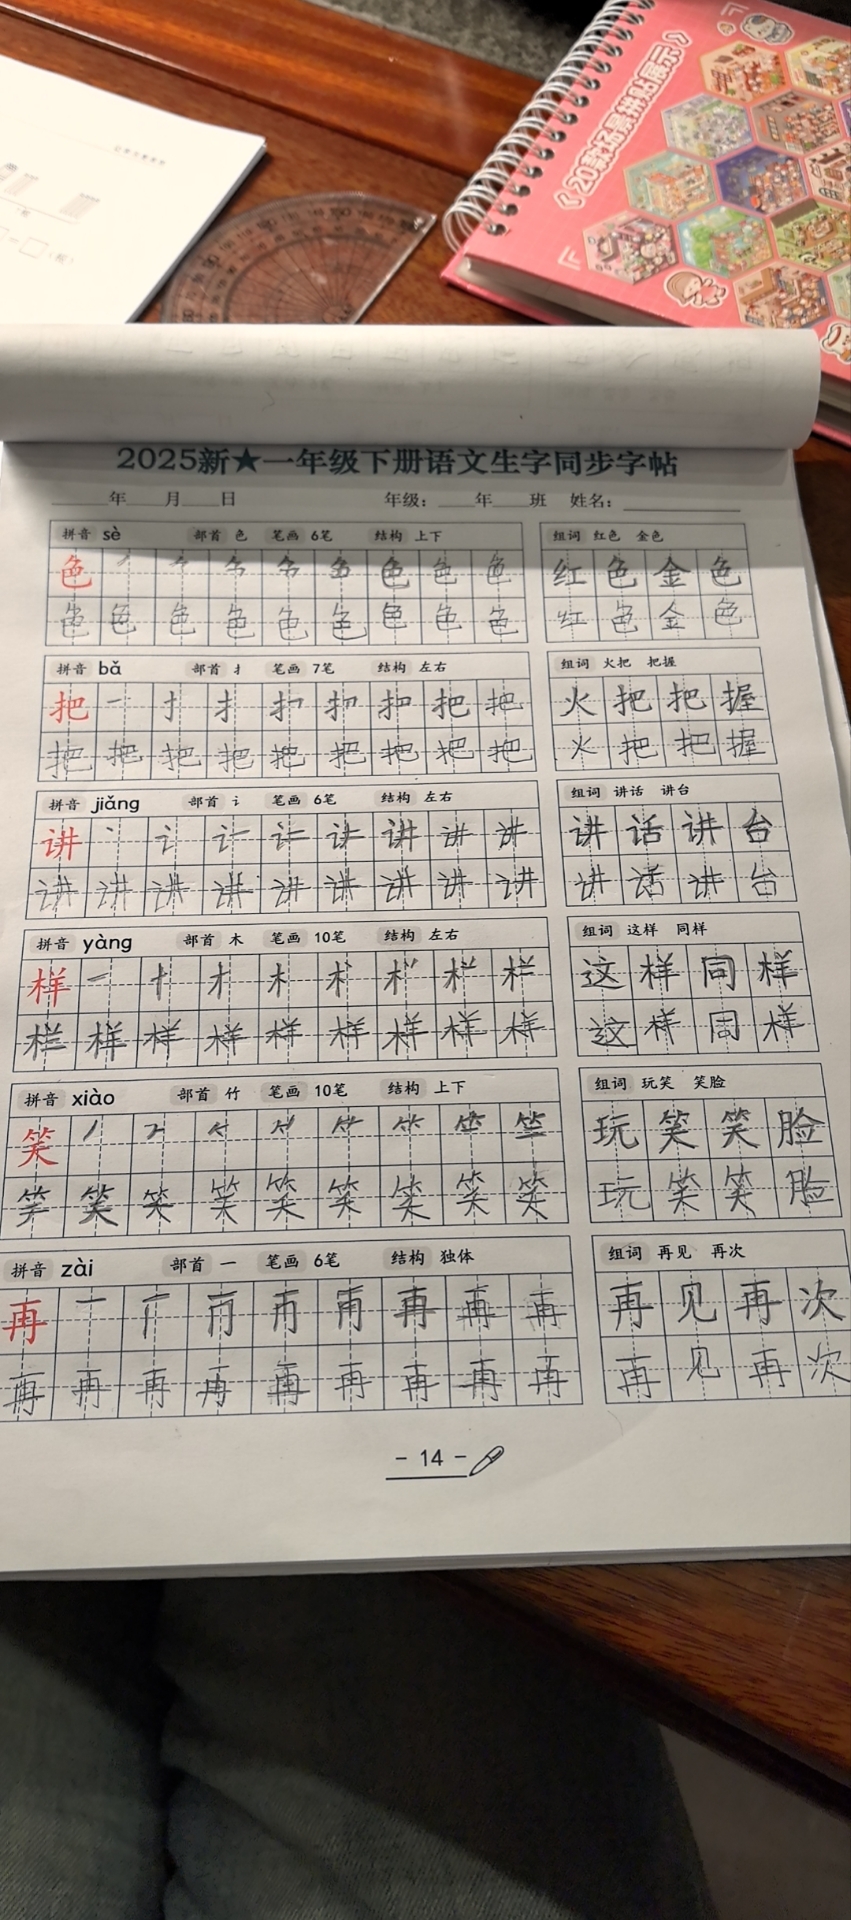 《20款场景拼贴展示》
2025新★一年级下册语文生字同步字帖
年 月 日 年级： 年 班 姓名：
拼音 sè 部首 色 笔画 6笔 结构 上下
组词 红色 金色
色
红色金色
色色色色色色色色色
红色金色
拼音 bǎ 部首 扌 笔画 7笔 结构 左右
组词 火把 把握
把
火把把握
把把把把把把把把把
火把把握
拼音 jiǎng 部首 讠 笔画 6笔 结构 左右
组词 讲话 讲台
讲
讲话讲台
讲讲讲讲讲讲讲讲讲
讲话讲台
拼音 yàng 部首 木 笔画 10笔 结构 左右
组词 这样 同样
样
这样同样
样样样样样样样样
这样同样
拼音 xiào 部首 竹 笔画 10笔 结构 上下
组词 玩笑 笑脸
笑
玩笑笑脸
笑笑笑笑笑笑笑笑
玩笑笑脸
拼音 zài 部首 一 笔画 6笔 结构 独体
组词 再见 再次
再 再再再
再见再次
再再再再再再再再再
再见再次
- 14 -